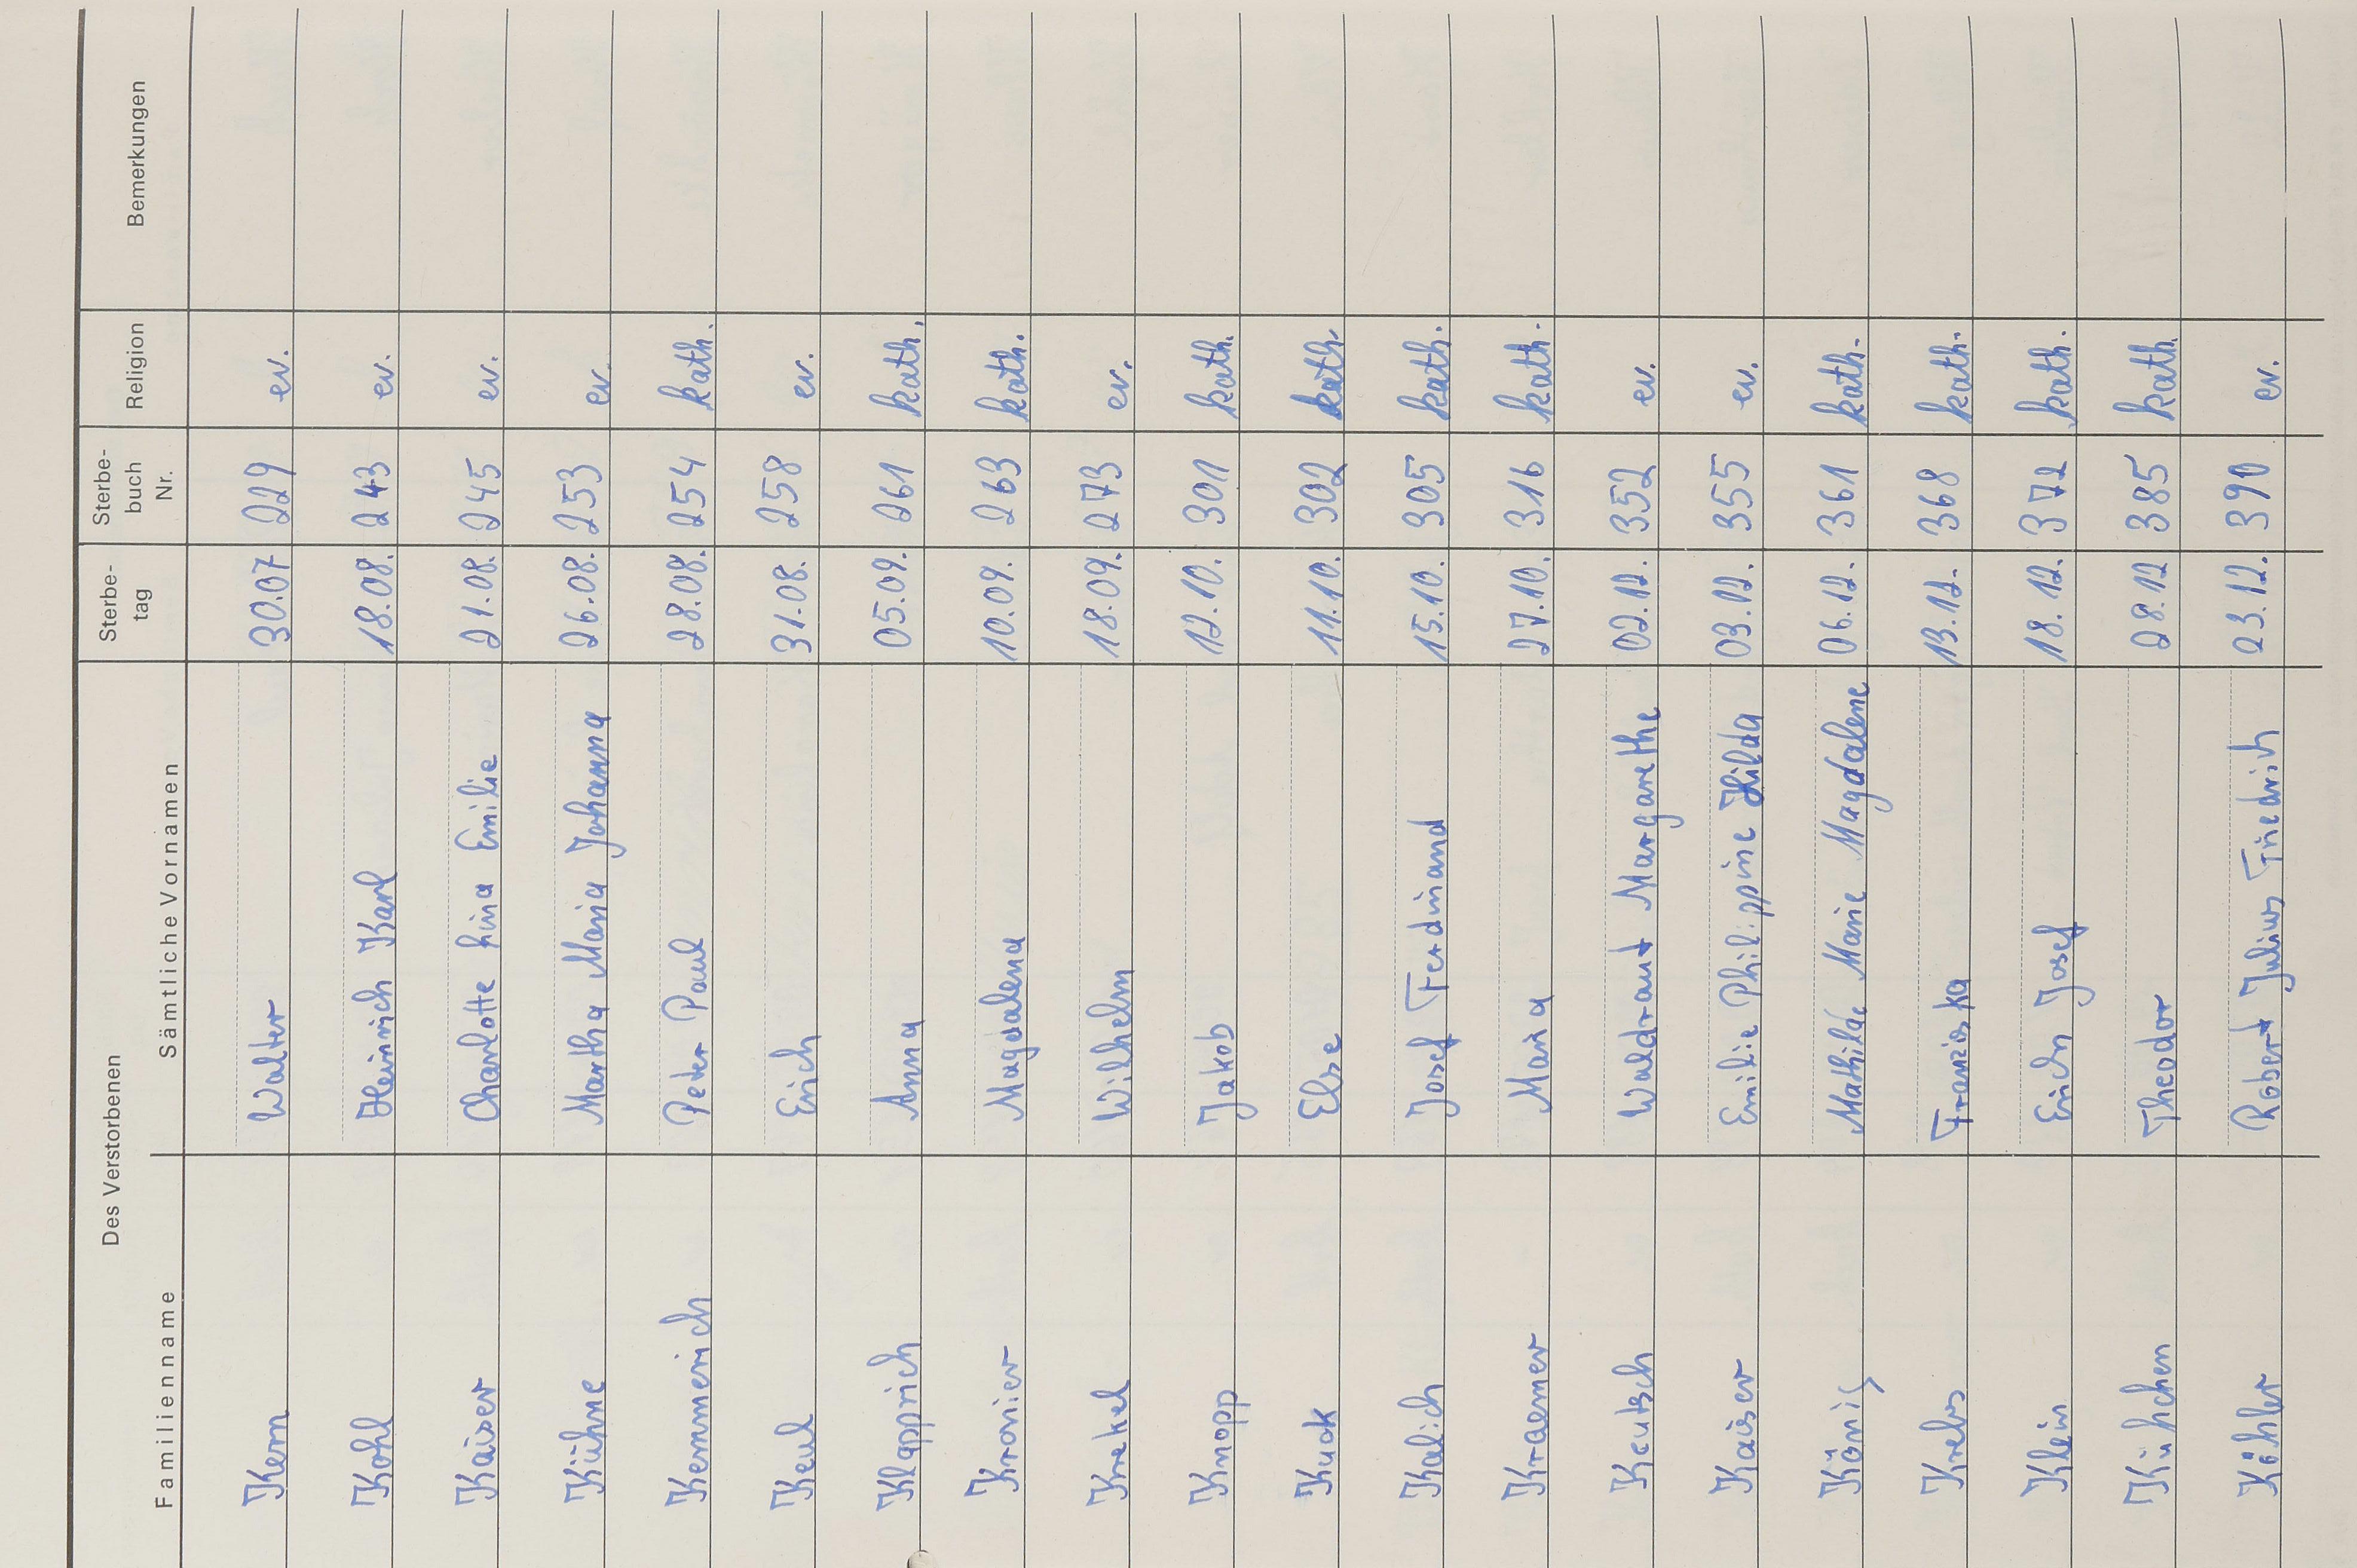 Des Verstorbenen Sterbe- Sterbe- Religion Bemerkungen
Familienname Sämtliche Vornamen tag buch
Nr.
Kern Walter 30.07 229 ev.
Kohl Heinrich Karl 18.08. 243 ev.
Kaiser Charlotte Lina Emilie 21.08. 245 ev.
Kühne Martha Maria Johanna 26.08. 253 ev.
Kemmerich Peter Paul 28.08. 254 kath.
Keul Erich 31.08. 258 ev.
Klapprich Anna 05.09. 261 kath.
Kronier Magdalena 10.09. 263 kath.
Krekel Wilhelm 18.09. 273 ev.
Knopp Jakob 12.10. 301 kath.
Kuck Else 11.10. 302 kath.
Kalich Josef Ferdinand 15.10. 305 kath.
Kraemer Maria 27.10. 316 kath.
Keutsch Waldraut Margarethe 02.12. 352 ev.
Kaiser Emilie Philippine Hilda 03.12. 355 ev.
König Mathilde Marie Magdalene 06.12. 361 kath.
Krebs Franziska 13.12. 368 kath.
Klein Erich Josef 18.12. 372 kath.
Kühchen Theodor 28.12 385 kath.
Köhler Robert Julius Friedrich 23.12. 390 ev.